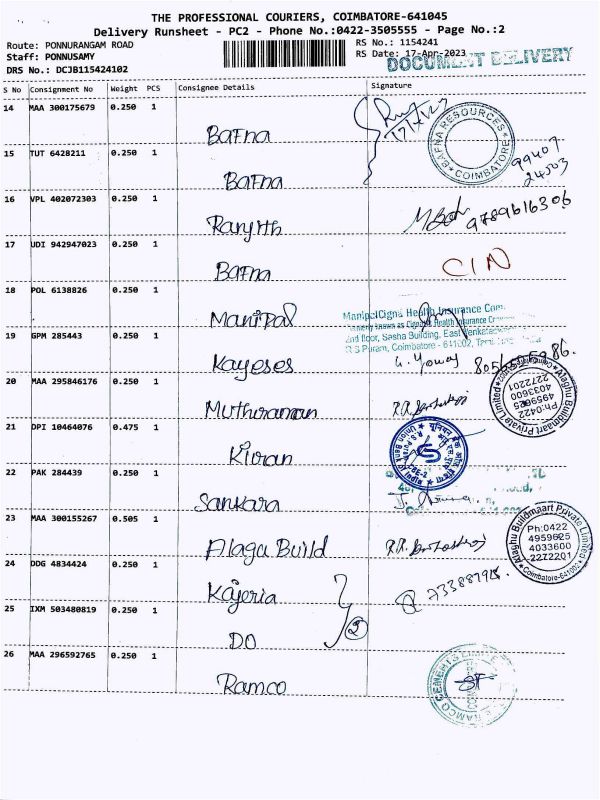 THE PROFESSIONAL COURIERS, COIMBATORE-641045
Delivery Runsheet - PC2 - Phone No.:0422-3505555 - Page No.:2
Route: PONNURANGAM ROAD
RS No.: 1154241
Staff: PONNUSAMY
RS Date: 17-Apr-2023
DOCUMENT DELIVERY
DRS No.: DCJB115424102
S No Consignment No Weight PCS Consignee Details Signature
14 MAA 300175679 0.250 1
Bafna
BAFNA RESOURCES
COIMBATORE
99407
24503
15 TUT 6428211 0.250 1
Bafna
16 VPL 402072303 0.250 1
Ranjith
9789616306
17 UDI 942947023 0.250 1
Bafna
CIN
18 POL 6138826 0.250 1
Manipal
ManipalCigna Health Insurance Com
2nd floor, Sasha Building, East Venkatasa
R S Puram, Coimbatore - 641002,
19 GPM 285443 0.250 1
Kayeses
20 MAA 295846176 0.250 1
Muthuraman
Alaghu Buildmaart Private Limited
Ph:0422
4959625
4033600
2272201
Coimbatore-641002
21 DPI 10464076 0.475 1
Kiran
22 PAK 284439 0.250 1
Sankara
23 MAA 300155267 0.505 1
Alaga Build
Alaghu Buildmaart Private Limited
Ph:0422
4959625
4033600
2272201
Coimbatore-641002
24 DDG 4834424 0.250 1
Kajeria
25 IXM 503480819 0.250 1
DO
2
26 MAA 296592765 0.250 1
Ramco
RAMCO CEMENTS LIMITED